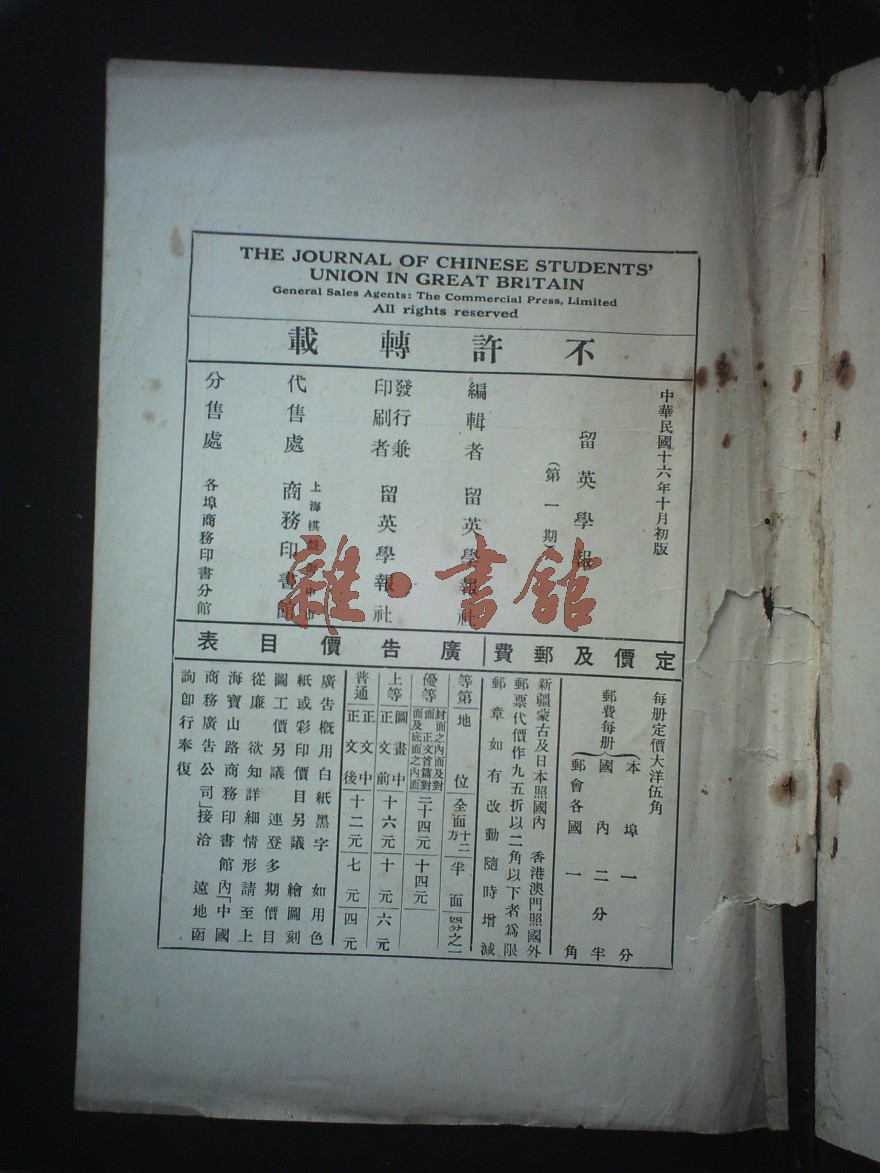 THE JOURNAL OF CHINESE STUDENTS'
UNION IN GREAT BRITAIN
General Sales Agents: The Commercial Press, Limited
All rights reserved
不許轉載
中華民國十六年十月初版
留英學報
(第一期
編輯者 留英學報社
發行兼印刷者 留英學報社
代售處 上海棋盤 商務印書館
分售處 各埠商務印書分館
定價及郵費
每册定價大洋伍角
郵費每册
本埠一分
國內二分半
郵會各國一角
新疆蒙古及日本照國內 香港澳門照國外
郵票代價作九五折以二角以下者爲限
郵章如有改動隨時增減
廣告價目表
等第 地位 全面 方十二 半面 四分之一
優等 封面之內面及對面 正文首篇對面及底面之內面 二十四元 十四元
上等 圖畫中 正文前 十六元 十元 六元
普通 正文中 正文後 十二元 七元 四元
廣告概用白紙黑字 如用色
紙或彩印價目另議 繪圖刻
圖工價另議 連登多期價目
從廉 欲知詳細情形請至上
海寶山路商務印書館內「中國
商務廣告公司」接洽 遠地函
詢卽行奉復
雜·書舘